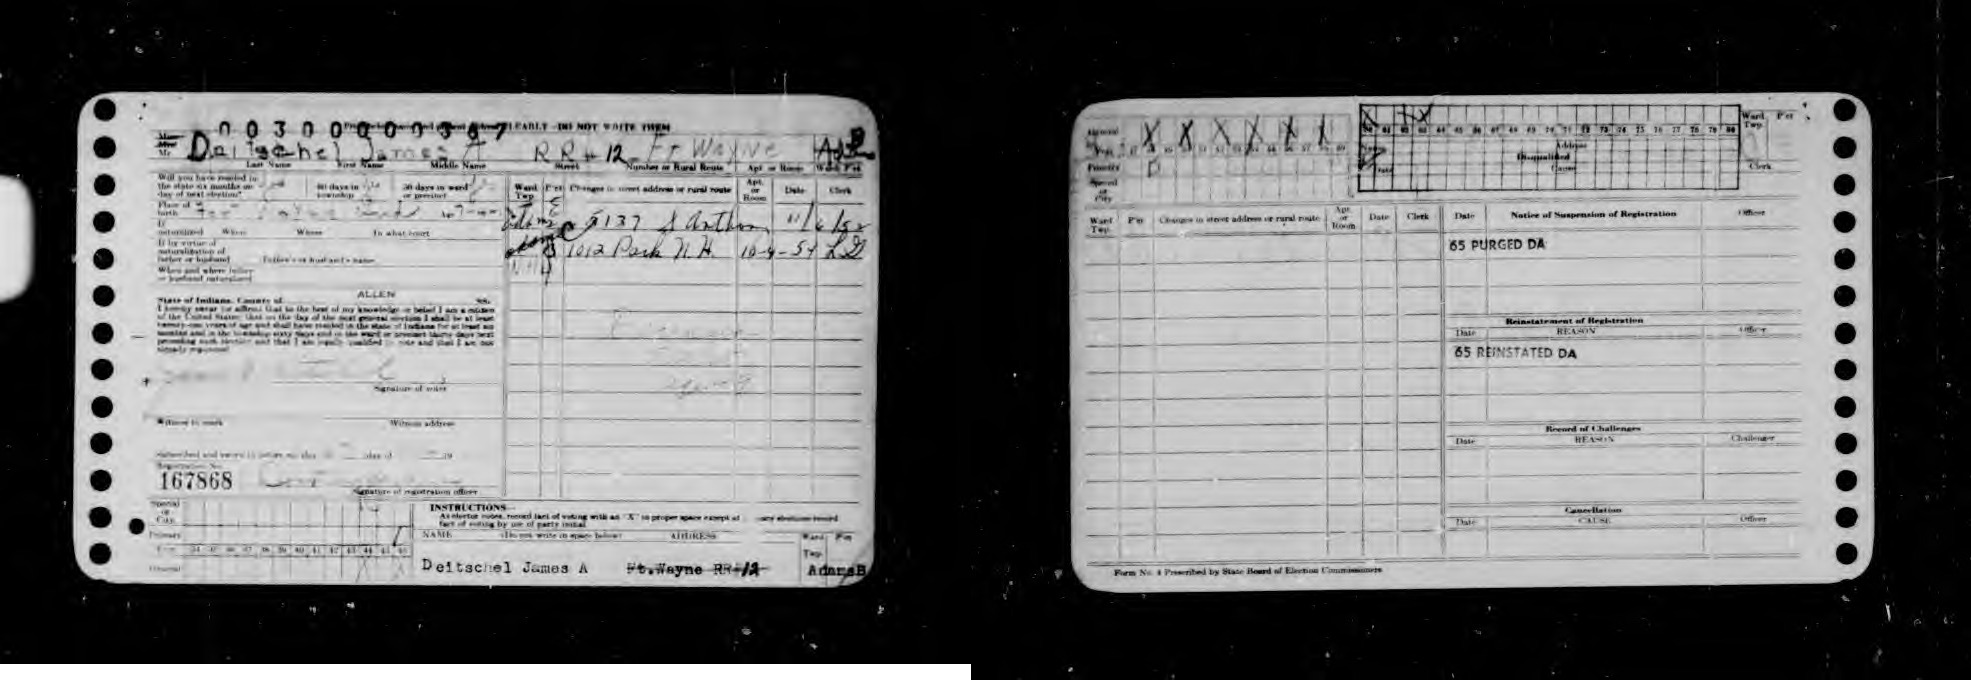 0030000367
LEARLY - DO NOT WRITE THEM
Mr. Deitschel James A RR # 12 - Ft Wayne Adams B
Last Name First Name Middle Name Street Number or Rural Route Apt. or Room Ward P'ct
Will you have resided in
the state six months on 60 days in 30 days in ward
day of next election? township or precinct
Place of
birth
If
naturalized When Where In what court
If by virtue of
naturalization of
father or husband Father's or husband's name
When and where father
or husband naturalized
State of Indiana, County of ALLEN SS:
I hereby swear (or affirm) that to the best of my knowledge or belief I am a citizen
of the United States; that on the day of the next general election I shall be at least
twenty-one years of age and shall have resided in the state of Indiana for at least six
months and in the township sixty days and in the ward or precinct thirty days next
preceding such election and that I am legally qualified to vote and that I am not
already registered
Signature of voter
Witness to mark Witness address
Subscribed and sworn to before me this day of 19
Registration No.
167868
Signature of registration officer
Ward Twp. P'ct Changes in street address or rural route Apt. or Room Date Clerk
Adams C 5137 S Anthony 11/6/52
1012 Park N.H. 10-9-54 LG
Special
or
City
Primary
Year 34 35 36 37 38 39 40 41 42 43 44 45 46
General X X
INSTRUCTIONS—
As elector votes, record fact of voting with an "X" in proper space except at primary elections record
fact of voting by use of party initial
NAME (Do not write in space below) ADDRESS Ward Twp. P'ct
Deitschel James A Ft.Wayne RR-12 Adams B
General X X X X X X
Year 47 48 49 50 51 52 53 54 55 56 57 58 59
Primary D
Special
or
City
X X X
60 61 62 63 64 65 66 67 68 69 70 71 72 73 74 75 76 77 78 79 80
Name Address
Disqualified
Date Cause
Ward Twp. P'ct
Clerk
Ward Twp. P'ct Changes in street address or rural route Apt. or Room Date Clerk
Date Notice of Suspension of Registration Officer
65 PURGED DA
Reinstatement of Registration
Date REASON Officer
65 REINSTATED DA
Record of Challenges
Date REASON Challenger
Cancellation
Date CAUSE Officer
Form No. 4 Prescribed by State Board of Election Commissioners